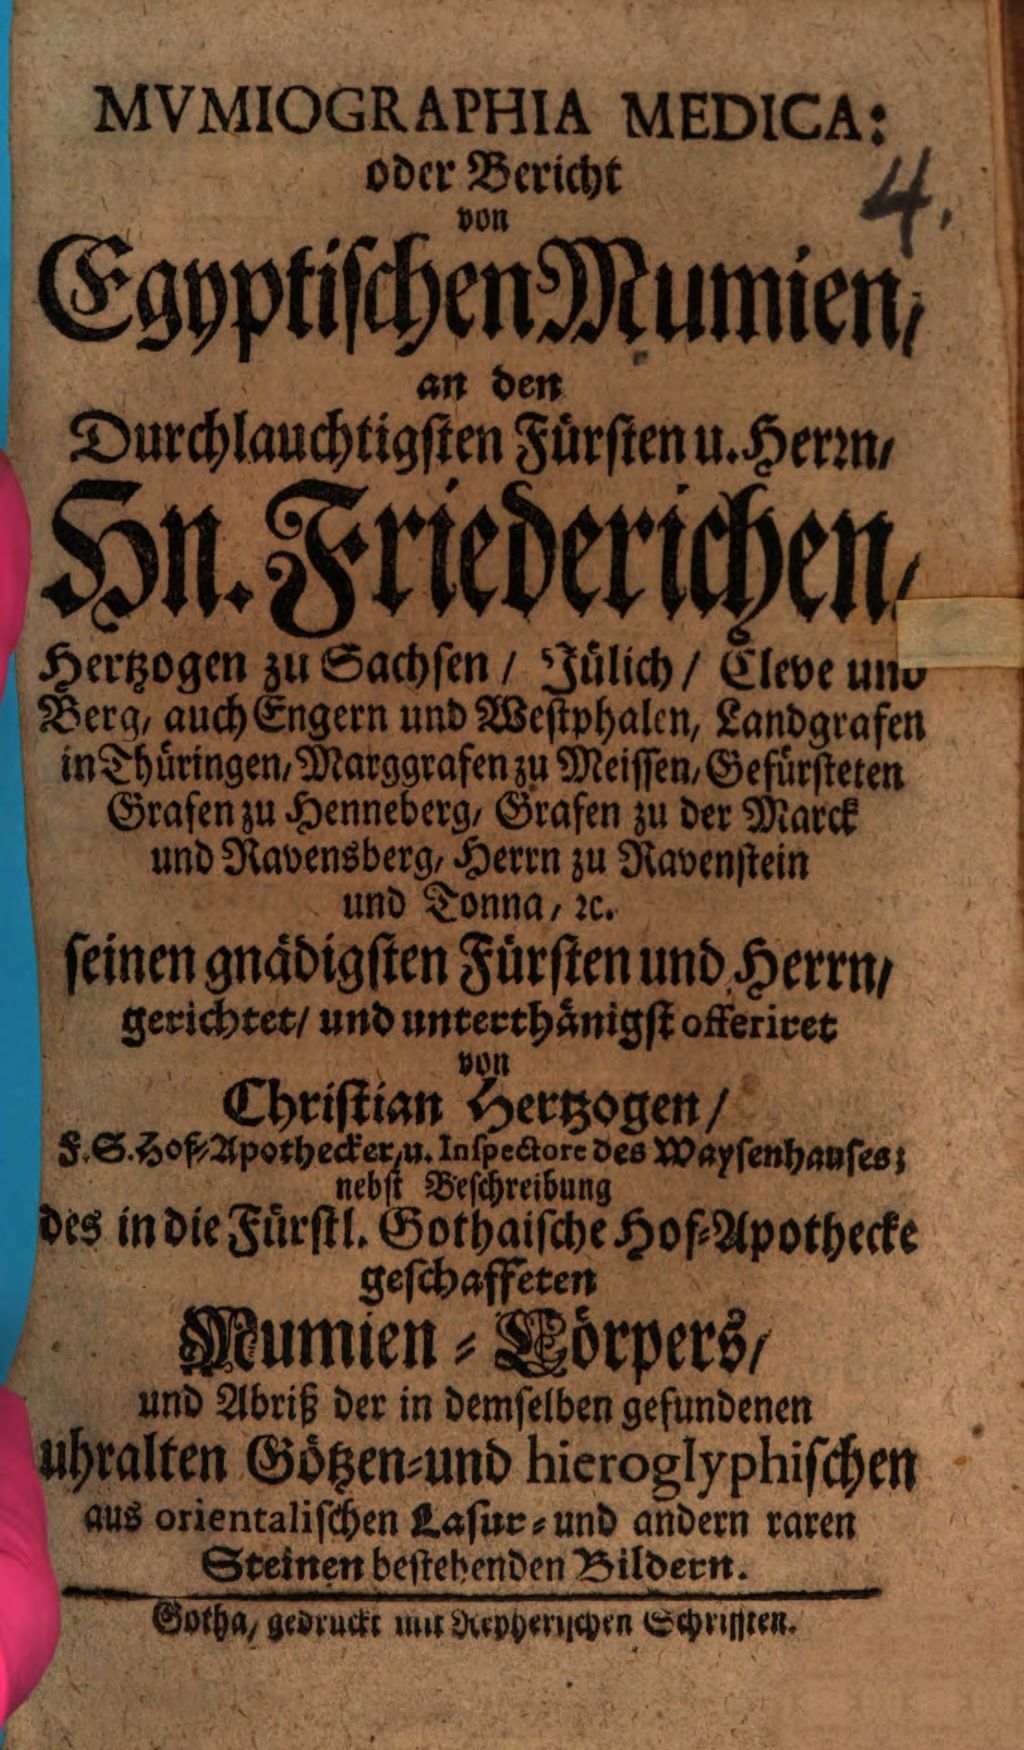 MVMIOGRAPHIA MEDICA:
oder Bericht
4.
von
Egyptischen Mumien,
an den
Durchlauchtigsten Fürsten u. Herrn,
Hn. Friederichen,
Hertzogen zu Sachsen / Jülich / Cleve und
Berg, auch Engern und Westphalen, Landgrafen
in Thüringen, Marggrafen zu Meissen, Gefürsteten
Grafen zu Henneberg, Grafen zu der Marck
und Ravensberg, Herrn zu Ravenstein
und Tonna, ꝛc.
seinen gnädigsten Fürsten und Herrn,
gerichtet/ und unterthänigst offeriret
von
Christian Hertzogen /
F. S. Hof-Apothecker, u. Inspectore des Waysenhauses;
nebst Beschreibung
des in die Fürstl. Gothaische Hof-Apothecke
geschaffeten
Mumien-Cörpers,
und Abriß der in demselben gefundenen
uhralten Götzen-und hieroglyphischen
aus orientalischen Lasur-und andern raren
Steinen bestehenden Bildern.
Gotha, gedruckt mit Reyherischen Schrifften.